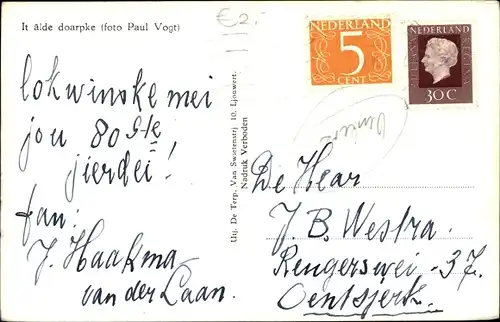 It âlde doarpke (foto Paul Vogt)
€2.-
NEDERLAND
5
CENT
NEDERLAND
30C
lokwinske mei
jou 80ste
jierdei!
fan:
J. Haakma
van der Laan.
Uitj. De Terp, Van Swietenstrj 10, Ljouwert.
Nadruk Verboden
De Hear
J. B. Westra.
Rengerswei - 37.
Oentsjerk.